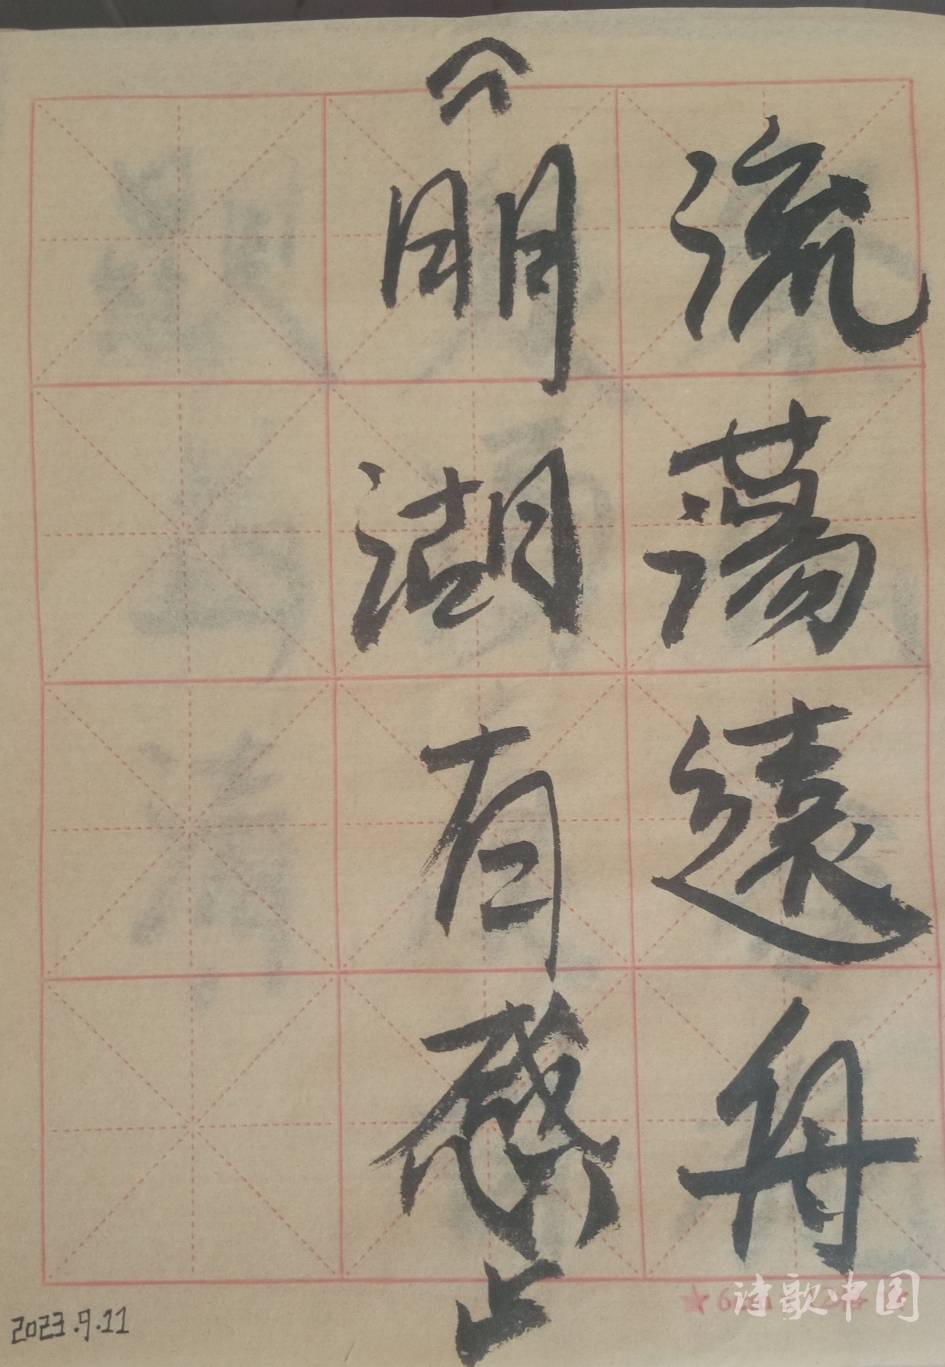 流荡遠舟
《明湖有感》
2023.9.11
诗歌中国